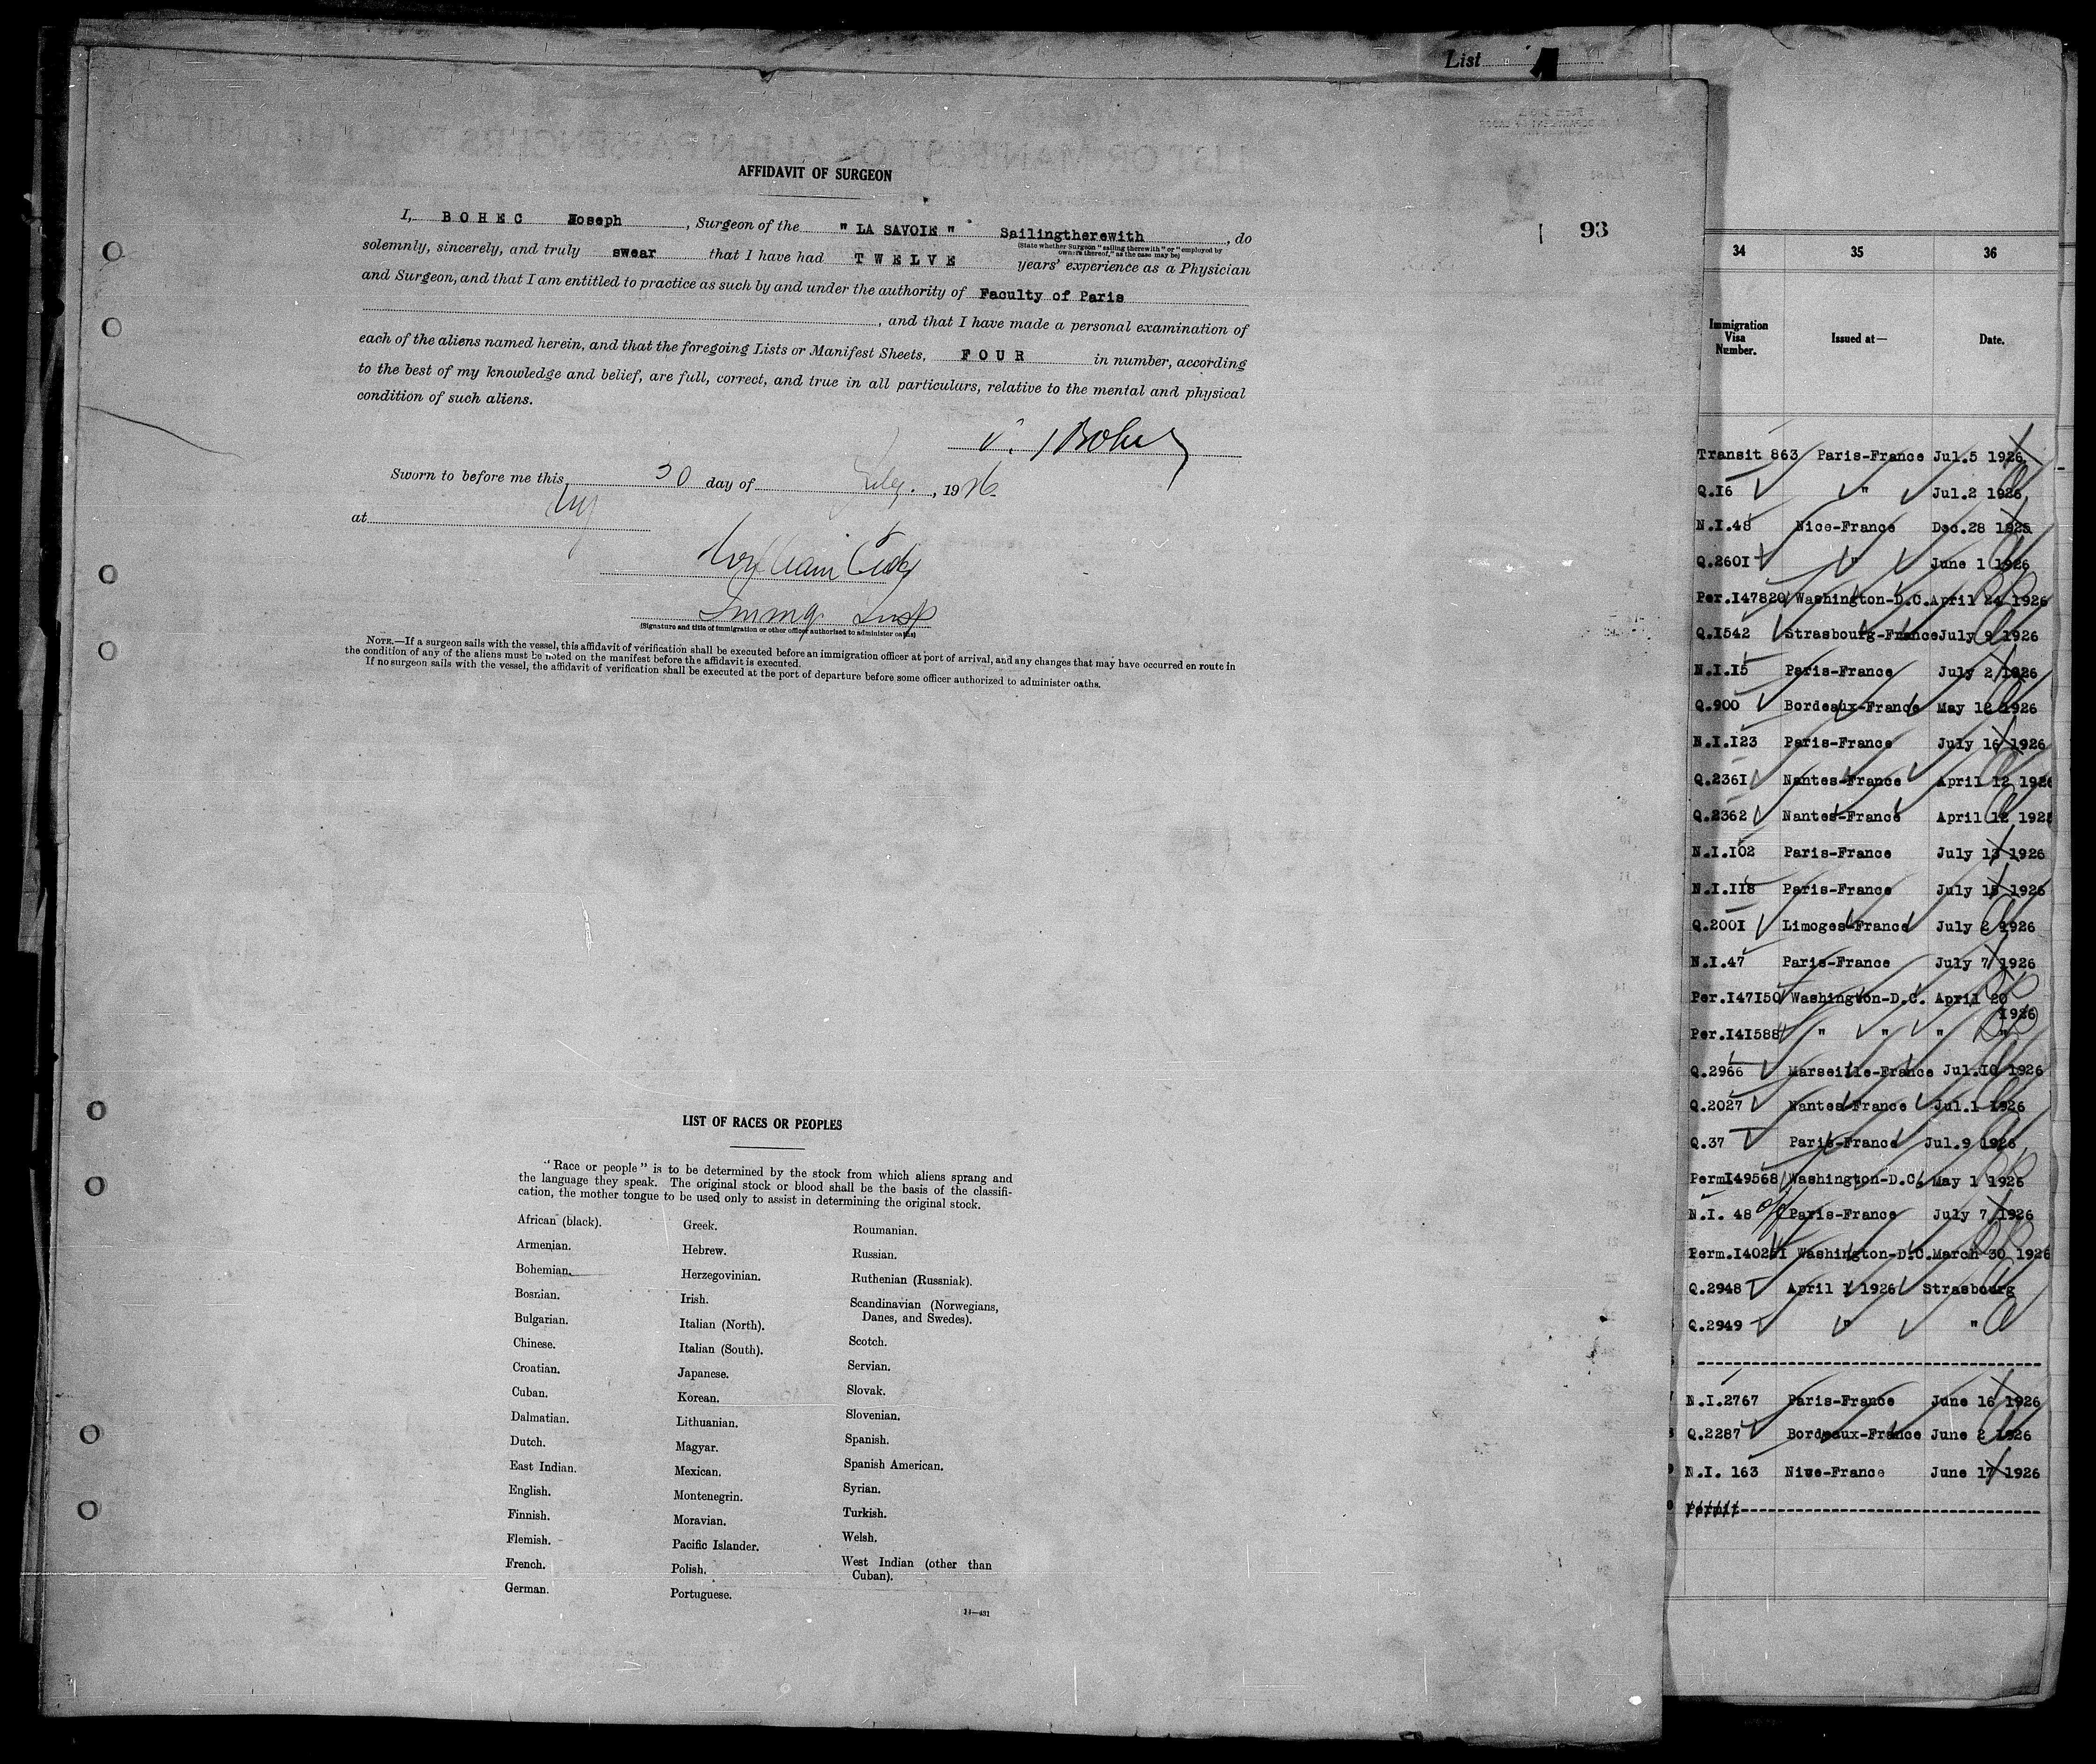 List
AFFIDAVIT OF SURGEON
I, BOHEC Hoseph, Surgeon of the "LA SAVOIE" Sailingtherewith, do
(State whether Surgeon "sailing therewith" or "employed by
owners thereof," as the case may be)
solemnly, sincerely, and truly swear that I have had TWELVE years' experience as a Physician
and Surgeon, and that I am entitled to practice as such by and under the authority of Faculty of Paris
, and that I have made a personal examination of
each of the aliens named herein, and that the foregoing Lists or Manifest Sheets, FOUR in number, according
to the best of my knowledge and belief, are full, correct, and true in all particulars, relative to the mental and physical
condition of such aliens.
Sworn to before me this 30 day of July, 1926
at ny
William
Immg Insp
(Signature and title of immigration or other officer authorized to administer oaths)
NOTE.—If a surgeon sails with the vessel, this affidavit of verification shall be executed before an immigration officer at port of arrival, and any changes that may have occurred en route in
the condition of any of the aliens must be noted on the manifest before the affidavit is executed.
If no surgeon sails with the vessel, the affidavit of verification shall be executed at the port of departure before some officer authorized to administer oaths.
LIST OF RACES OR PEOPLES
"Race or people" is to be determined by the stock from which aliens sprang and
the language they speak. The original stock or blood shall be the basis of the classifi-
cation, the mother tongue to be used only to assist in determining the original stock.
African (black).
Armenian.
Bohemian.
Bosnian.
Bulgarian.
Chinese.
Croatian.
Cuban.
Dalmatian.
Dutch.
East Indian.
English.
Finnish.
Flemish.
French.
German.
Greek.
Hebrew.
Herzegovinian.
Irish.
Italian (North).
Italian (South).
Japanese.
Korean.
Lithuanian.
Magyar.
Mexican.
Montenegrin.
Moravian.
Pacific Islander.
Polish.
Portuguese.
Roumanian.
Russian.
Ruthenian (Russniak).
Scandinavian (Norwegians,
Danes, and Swedes).
Scotch.
Servian.
Slovak.
Slovenian.
Spanish.
Spanish American.
Syrian.
Turkish.
Welsh.
West Indian (other than
Cuban).
14—431
93
34 35 36
Immigration
Visa
Number.
Issued at—
Date.
Transit 863 Paris-France Jul.5 1926
Q.I6 " Jul.2 1926
N.I.48 Nice-France Dec.28 1925
Q.260I " June 1 1926
Per.I47820 Washington-D.C. April 24 1926
Q.I542 Strasbourg-France July 9 1926
N.I.I5 Paris-France July 2 1926
Q.900 Bordeaux-France May 12 1926
N.I.I23 Paris-France July 16 1926
Q.236I Nantes-France April 12 1926
Q.2362 Nantes-France April 12 192
N.I.I02 Paris-France July 13 1926
N.I.II8 Paris-France July 15 1926
Q.200I Limoges-France July 2 1926
N.I.47 Paris-France July 7 1926
Per.I47I50 Washington-D.C. April 20
1926
Per.I4I588 " " " "
Q.2966 Marseille-France Jul.I0 1926
Q.2027 Nantes-France Jul.1 1926
Q.37 Paris-France Jul.9 1926
PermI49568 Washington-D.C. May 1 1926
N.I. 48 Paris-France July 7 1926
Perm.I4025I Washington-D.C. March 30 1926
Q.2948 April 1 1926 Strasbourg
Q.2949 " "
N.I.2767 Paris-France June 16 1926
Q.2287 Bordeaux-France June 2 1926
N.I. 163 Nive-France June 17 1926
Permit